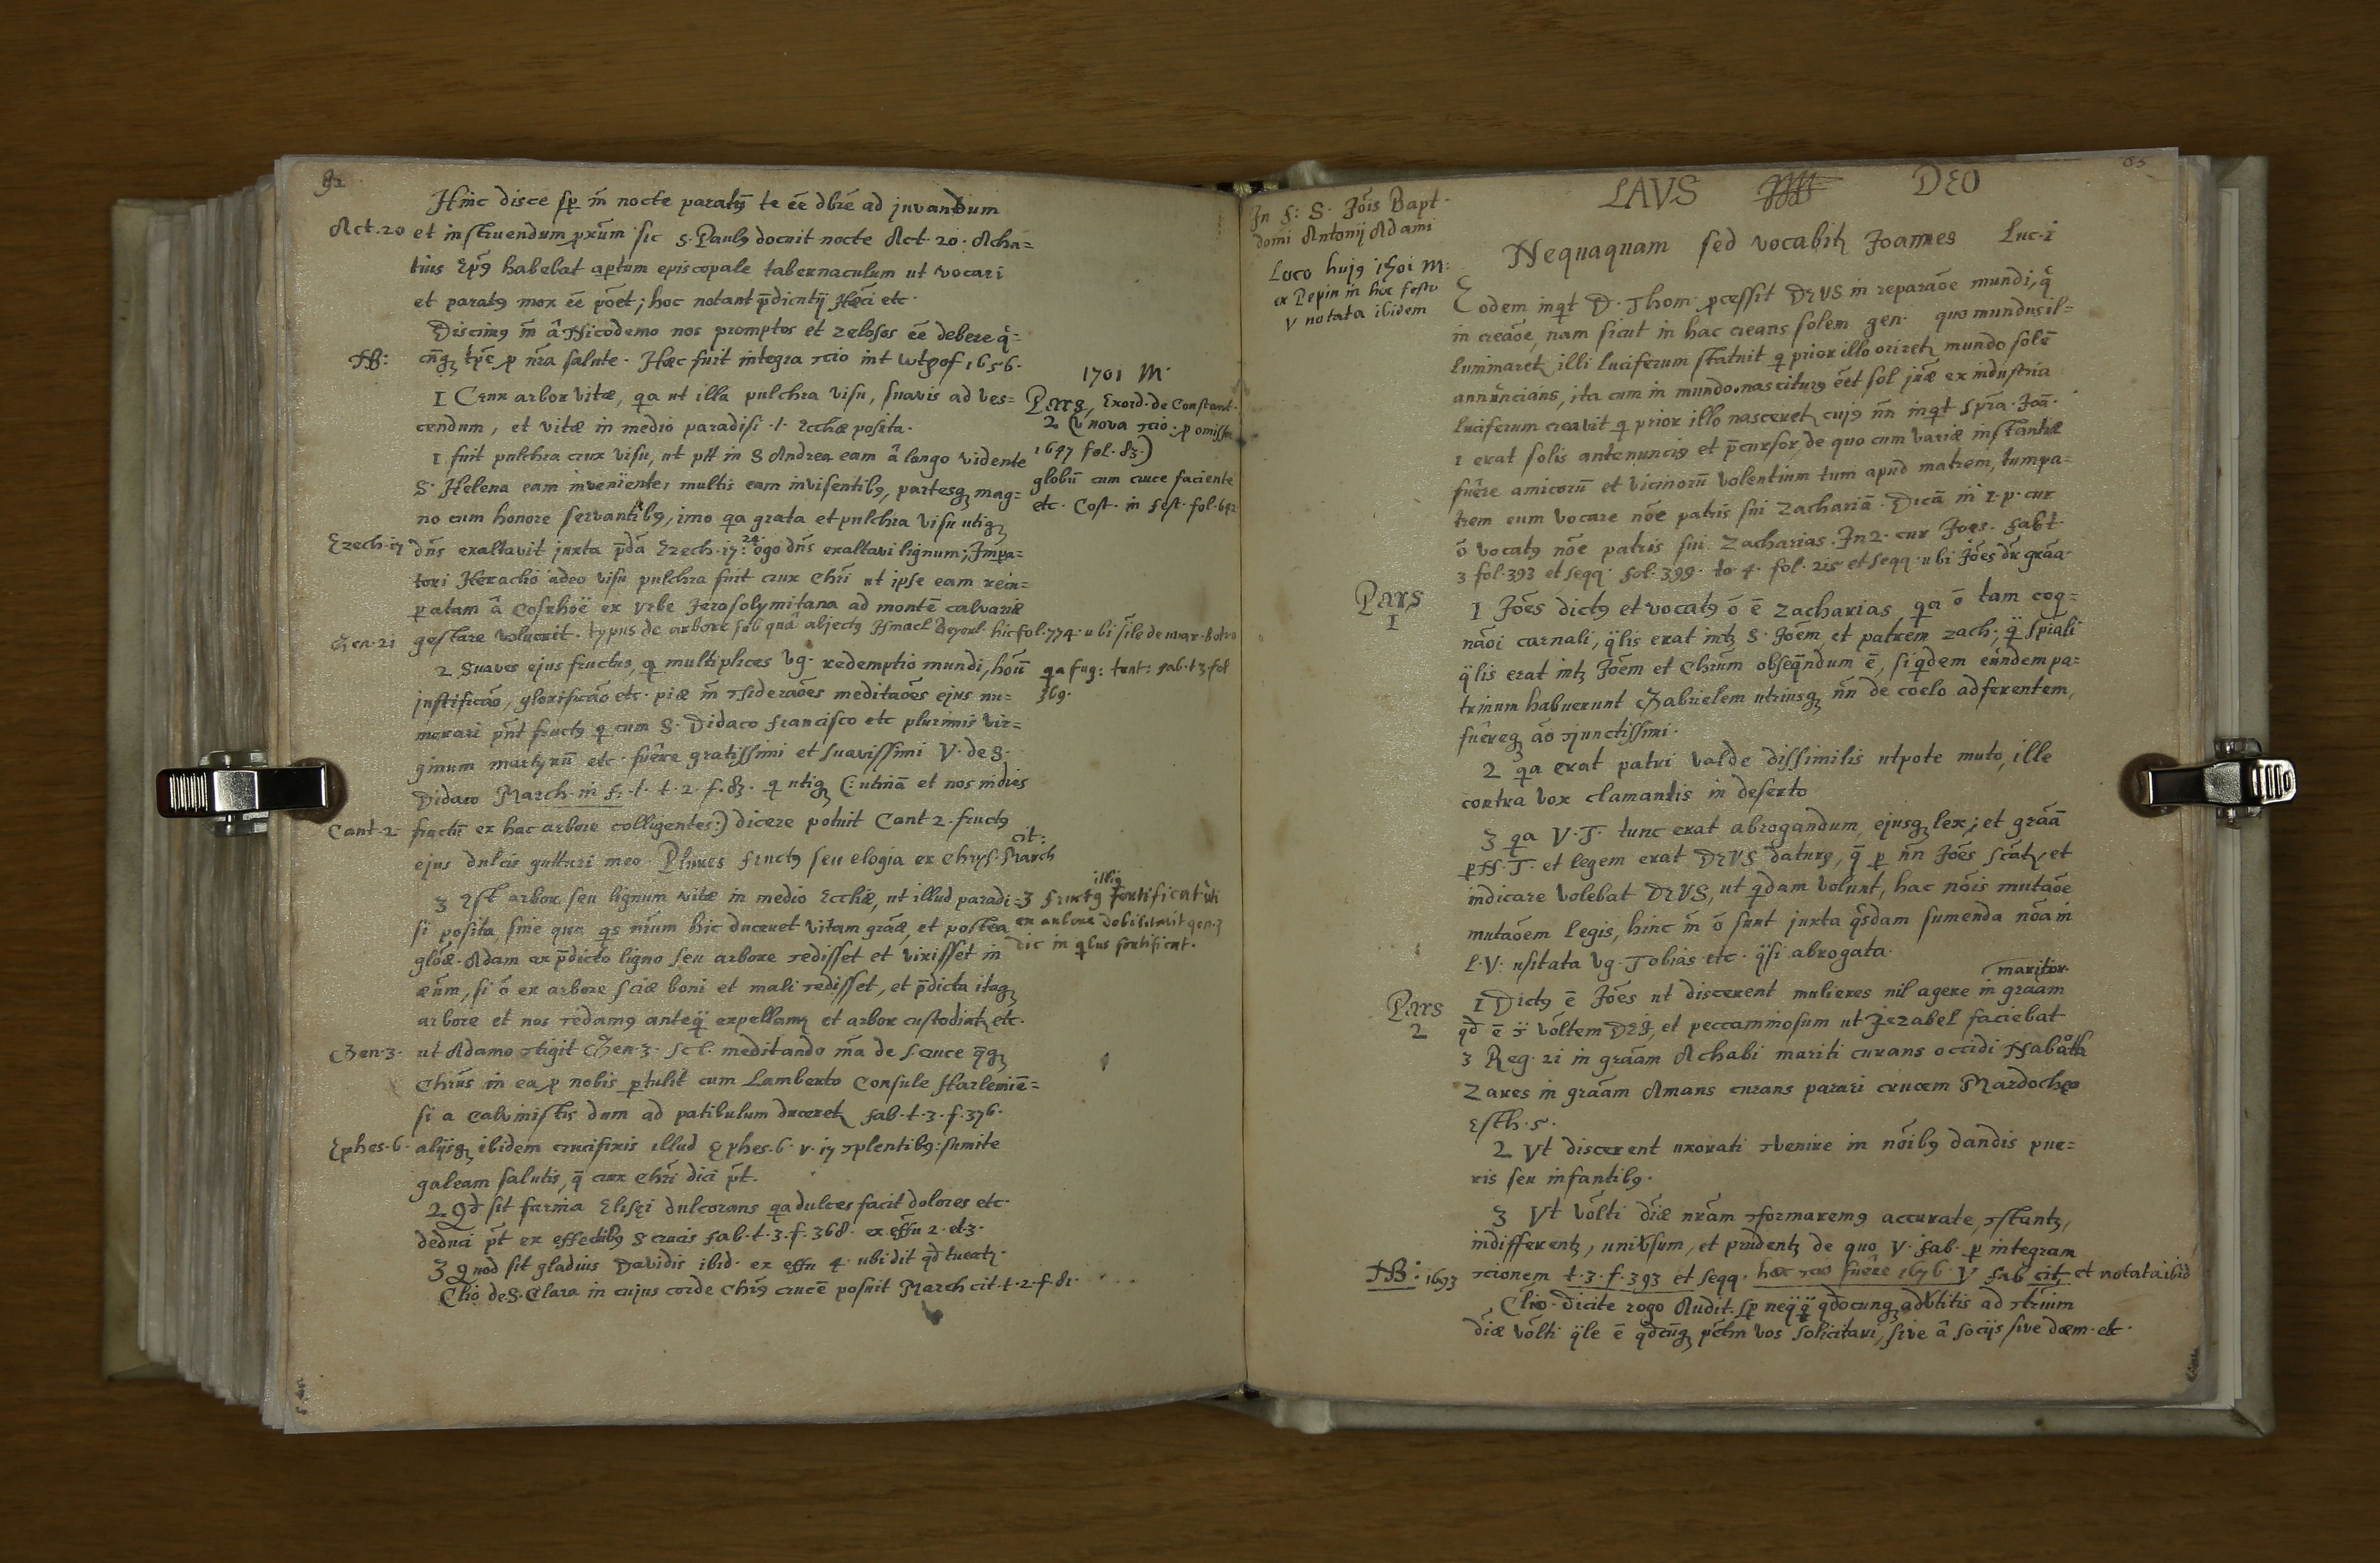 92
Hinc disce sp̄ m̄ nocte paratū te ee dbre ad juvandum
Act. 20 et instruendum pxūm sic S. Pauly docuit nocte Act. 20. Acha=
tius Epūs habebat aptum episcopale tabernaculum ut vocari
et paraty mox ēe pōet; hoc notant p̄dictij Hxci etc.
Discimy m̄ â Nicodemo nos promptos et zelosos ēe debere
NB: tp̄e p nr̄a salute. Hæc fuit integra 1656.
I Crux arbor vitæ, qa ut illa pulchra visu, suavis ad ves=
cendum, et vitæ in medio paradisi .l. Ecchæ posita.
1701 M.
Pars, Exord. de Constant.
2 (v nova p omissa
1697 fol. 83.)
globū cum cruce faciente
etc. Cost. in fest. fol. 642
I. fuit pulchra crux visu, ut ptt in S Andrea eam â longo vidente
S. Helena eam inveniente, multis eam invisentiby, partesq mag=
no cum honore servantiby, imo qa grata et pulchra visu utiq
Ezech. 17 dn̄s exaltavit juxta p̄da Ezech. 17. 24 ego dn̄s exaltavi lignum; Jmpa=
tori Heraclio adeo visu pulchra fuit crux Chri ut ipse eam recu=
peratam â Cosrhoë ex Vrbe Jerosolymitana ad montē calvariæ
Gen. 21 gestare voluerit. typus de arbore sub qua abjecty Ismael hic fol. 774. ubi sīle de mar
2 Suaves ejus fructus, q multiplices vg. redemptio mundi, hoūm
qa fug: tunt: fab. t 3. fol
369.
justificāo, glorificāo etc. piæ m̄ ɔsideraōes meditaōes ejus nu=
merari pn̄t fructy q cum S. Didaco Francisco etc plurimis vir=
ginum martyrū etc. fuêre gratissimi et suavissimi V. de S.
Didaco March. in f. .t. t. 2. f. 83. q utiq (: utinā et nos indies
Cant. 2 fructū ex hac arbore colligentes:) dicere potuit Cant 2. fructy
ejus dulcis gutturi meo. Plures fructy seu elogia ex Chrys. March
cit:
3 Est arbor seu lignum vitæ in medio Ecchæ, ut illud paradi=
3 fructy illiq fortificat uti
si posita, sine qua qs nr̄um hic duceret vitam grāæ, et postea
ex arbore debilitavit gen. 3
glōæ. Adam ex p̄dicto ligno seu arbore ɔedisset et vixisset in
dic in qbus fortificat.
æūm, si ō ex arbore sciæ boni et mali ɔedisset, et p̄dicta itaq
arbore et nos ɔedamy anteq̈ expellamr et arbor custodiatr etc.
Gen. 3. ut Adamo ɔtigit Gen. 3. scl. meditando m̄a de S cruce q̄q
Chrus in ea p nobis ptulit cum Lamberto Consule Harlemiē=
si a Calvinistis dum ad patibulum ducerets fab. t. 3. f. 376.
Ephes. 6. alijsq ibidem crucifixis illud Ephes. 6. v. 17 ɔplentiby: sumite
galeam salutis, q̄ crux Chri dici pt̄.
2 Qd sit farina Elisęi dulcorans qa dulces facit dolores etc.
deduci pt̄ ex effectiby S crucis fab. t. 3. f. 368. ex effu 2. et 3.
3 Quod sit gladius Davidis ibid. ex effu 4. ubi dit qd tueatr.
Clio de S. Clara in cujus corde Chrs crucē posuit March cit. t. 2. f. 81.
85
LAVS DEO
In f: S. Jōis Bapt.
domi Antonij Adami
Nequaquam sed vocabitr Joannes Luc. 1
Loco hujy 1701 M:
ex Pepin in hoc festo
v notata ibidem
Eodem inqt D. Thom. pcessit DEUS in reparaōe mundi, q̂
in creaōe, nam sicut in hac creans solem gen. quo mundus il=
luminaretr illi luciferum statuit q prior illo oriretr mundo solē
annūncians, ita cum in mundo nascitury ēet sol jūæ ex industria
luciferum creavit q prior illo nasceretr cujy n̄n inqt Spra. Joā.
1 erat solis antenuncig et p̄cursor, de quo cum variæ instantiæ
fuêre amicorū et vicinorū volentium tum apud matrem, tum pa=
trem eum vocare nōe patris sui Zachariā. Dicā in 1. p. cur
ō vocaty nōe patris sui Zacharias. In 2. cur Joes. fab t.
3 fol. 393 et seqq. fol. 399. to. 4. fol. 215 et seqq. ubi Jōes dr grāa.
Pars 1
I Jōes dicty et vocaty ō ē Zacharias, qa ō tam cog=
nāoi carnali, q̈lis erat intr S. Joēm, et patrem Zach., q̈ spiāli
q̈lis erat intr Joēm et Chrum obseq̄ndum ē, siqdem eūndem pa=
trinum habuerunt Gabrielem utriusq n̄n de coelo adferentem,
fuêreq aō ɔjunctissimi.
2 qa erat patri valde dissimilis utpote muto, ille
contra vox clamantis in deserto
3 qa V. T. tunc erat abrogandum, ejusq lex; et grāā
p N. T. et legem erat DEUS datury, q̄ p n̄n Jōēs scātr, et
indicare volebat DEUS, ut qdam volunt, hac nōis mutāoe
mutaōem legis, hinc m̄ ō sunt juxta qsdam sumenda nōā in
l. V. usitata vg. Tobias etc. q̈si abrogata.
Pars 2
I Dicty ē Jōes ut discerent mulieres nil agere in grāam maritor.
qd ē ɔ̈ vōltem DEI, et peccaminosum ut Jezabel faciebat
3 Reg. 21 in grāam Achabi mariti curans occidi Naboth
Zares in grāam Amans curans parari crucem Mardochęo
Esth. 5.
2 Vt discerent uxorati ɔvenire in nōiby dandis pue=
ris seu infantiby.
3 Vt vōlti diæ nrām ɔformaremy accurate, ɔstantr,
indifferentr, univsum, et prudentr de quo V. fab. p integram
NB: 1693 ɔcionem t. 3. f. 393 et seqq. hæc ɔcio fuêre 1676. V fab citr et notata ibid
Clio. dicite rogo Audit. sp neq̈q̈ qdocunq advtitis ad ɔtrium
diæ vōlti q̈le ē qdcūq pctm vos solicitari, sive â socijs sive dæm. etc.